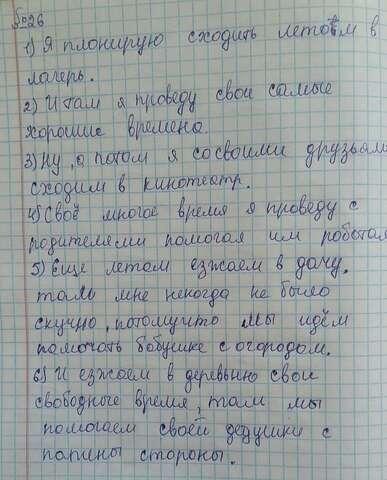 №26
1) Я планирую сходить летом в
лагерь.
2) И там я проведу свои самые
хорошие времена.
3) Ну, а потом я со своими друзьям
сходим в кинотеатр.
4) Своё многое время я проведу с
родителями помогая им работая
5) Еще летом езжаем в дачу,
там мне некогда не было
скучно, потомучто мы идём
помогать бабушке с огородом.
6) И езжаем в деревьню свои
свободные время, там мы
помогаем своей дедушки с
папины стороны.